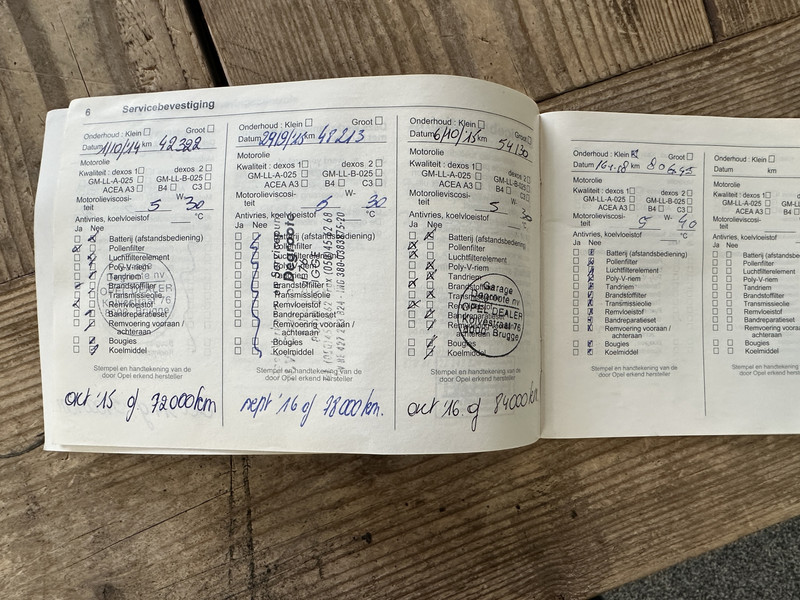 6 Servicebevestiging
Onderhoud : Klein Groot
Datum 1/10/14 km 42322
Motorolie
Kwaliteit : dexos 1 dexos 2
GM-LL-A-025 GM-LL-B-025
ACEA A3 B4 C3
Motorolieviscosi- W-
teit 5 30
Antivries, koelvloeistof °C
Ja Nee
Batterij (afstandsbediening)
Pollenfilter
Luchtfilterelement
Poly-V-riem
Tandriem
Brandstoffilter
Transmissieolie
Remvloeistof
Bandreparatieset
Remvoering vooraan /
achteraan
Bougies
Koelmiddel
Stempel en handtekening van de
door Opel erkend hersteller
okt 15 of 72000km
Onderhoud : Klein Groot
Datum 29/9/15 km 48213
Motorolie
Kwaliteit : dexos 1 dexos 2
GM-LL-A-025 GM-LL-B-025
ACEA A3 B4 C3
Motorolieviscosi- W-
teit 5 30
Antivries, koelvloeistof °C
Ja Nee
Batterij (afstandsbediening)
Pollenfilter
Luchtfilterelement
Poly-V-riem
Tandriem
Brandstoffilter
Transmissieolie
Remvloeistof
Bandreparatieset
Remvoering vooraan /
achteraan
Bougies
Koelmiddel
Degroote
Stempel en handtekening van de
door Opel erkend hersteller
sept '16 of 78000km.
Onderhoud : Klein Groot
Datum 6/10/15 km 54130
Motorolie
Kwaliteit : dexos 1 dexos 2
GM-LL-A-025 GM-LL-B-025
ACEA A3 B4 C3
Motorolieviscosi- W-
teit 5 30
Antivries, koelvloeistof °C
Ja Nee
Batterij (afstandsbediening)
Pollenfilter
Luchtfilterelement
Poly-V-riem
Tandriem
Brandstoffilter
Transmissieolie
Remvloeistof
Bandreparatieset
Remvoering vooraan /
achteraan
Bougies
Koelmiddel
Garage
Degroote nv
OPEL DEALER
Kolvestraat 76
8000 Brugge
Stempel en handtekening van de
door Opel erkend hersteller
okt 16 of 84000km
Onderhoud : Klein Groot
Datum km
Motorolie
Kwaliteit : dexos 1 dexos 2
GM-LL-A-025 GM-LL-B-025
ACEA A3 B4 C3
Motorolieviscosi- W-
teit 5 40
Antivries, koelvloeistof °C
Ja Nee
Batterij (afstandsbediening)
Pollenfilter
Luchtfilterelement
Poly-V-riem
Tandriem
Brandstoffilter
Transmissieolie
Remvloeistof
Bandreparatieset
Remvoering vooraan /
achteraan
Bougies
Koelmiddel
Stempel en handtekening van de
door Opel erkend hersteller
Onderhoud : Klein
Datum km
Motorolie
Kwaliteit : dexos 1
GM-LL-A-025
ACEA A3
Motorolieviscosi-
teit
Antivries, koelvloeistof
Ja Nee
Batterij (afstands
Pollenfilter
Luchtfilterelement
Poly-V-riem
Tandriem
Brandstoffilter
Transmissieolie
Remvloeistof
Bandreparatieset
Remvoering voora
achteraan
Bougies
Koelmiddel
Stempel en handtekening
door Opel erkend herste